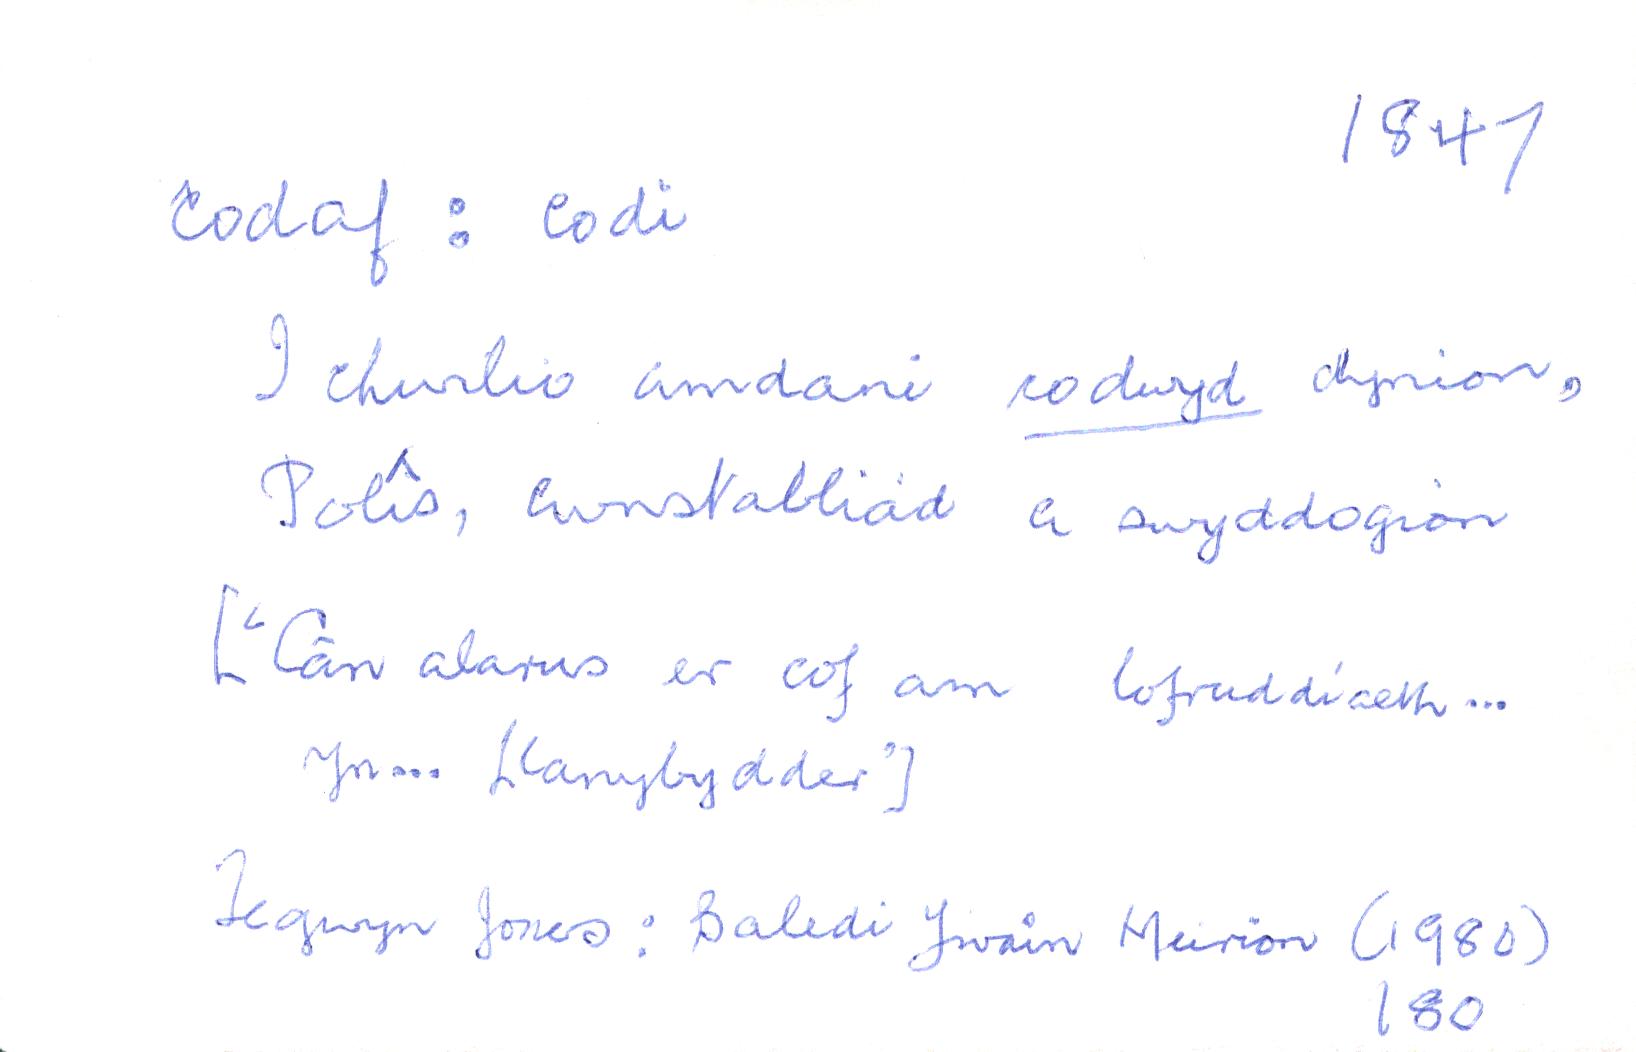 1847
codaf : codi
I chwilio amdani codwyd dynion,
Polîs, cwnstabliaid a swyddogion
[‘Cân alarus er cof am lofruddiaeth...
yn... Llanybydder’]
Tegwyn Jones : Baledi Ywain Meirion (1980)
180